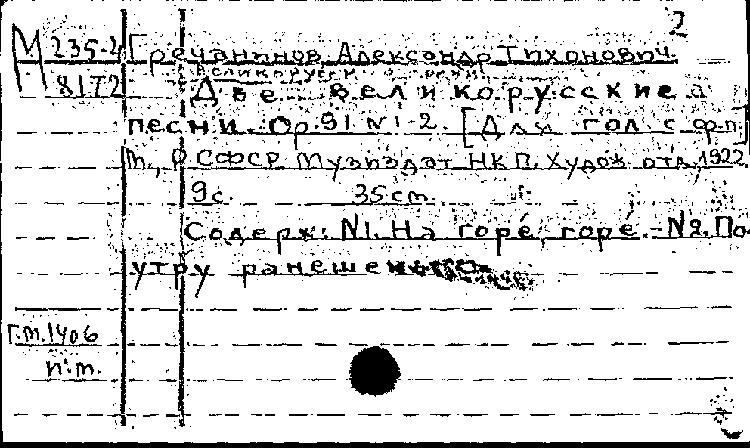 2
М 235-2 Гречанинов, Александр Тихонович.
8172 Две великорусские
песни. Op. 91 №1-2. [Для гол. с ф-п.]
М., РСФСР. Музиздат НКП. Худож. отд., 1922.
9 с. 35 cm.
Содерж: №1. На горе, горе. - №2. По
утру ранешенько
Г.м.1406
п.м.